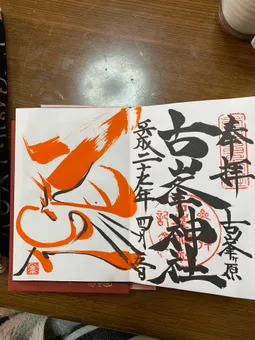 奉拝
古峯原
古峯神社
平成二十七年 四月 吉日